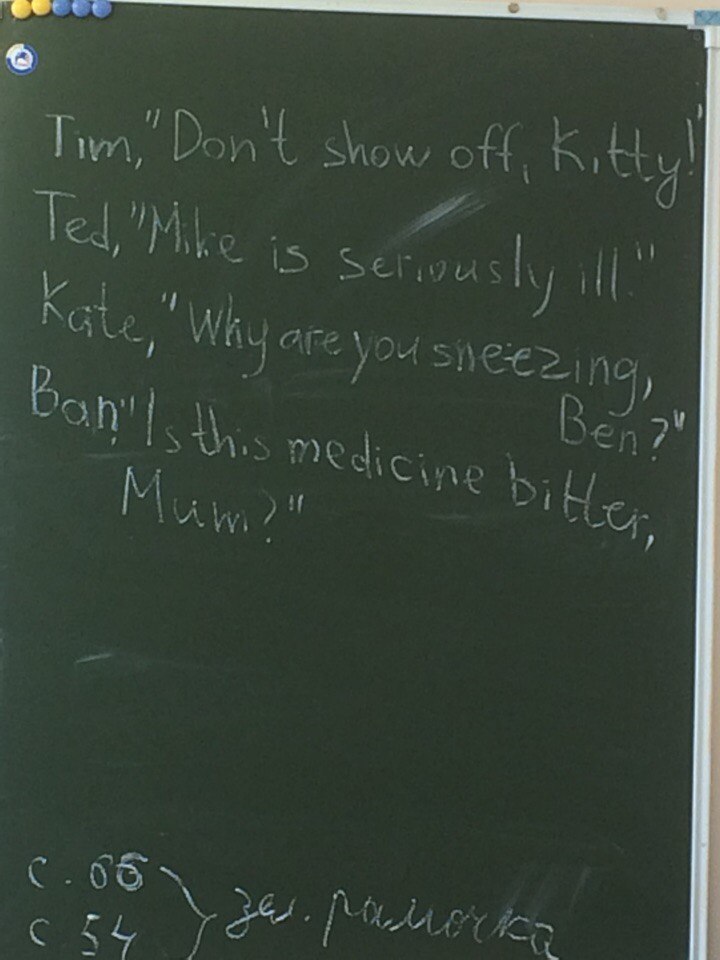 Tim, "Don't show off, Kitty!"
Ted, "Mike is seriously ill."
Kate, "Why are you sneezing,
Ben?"
Ban, "Is this medicine bitter,
Mum?"
с. 66
с 54
зел. рамочка